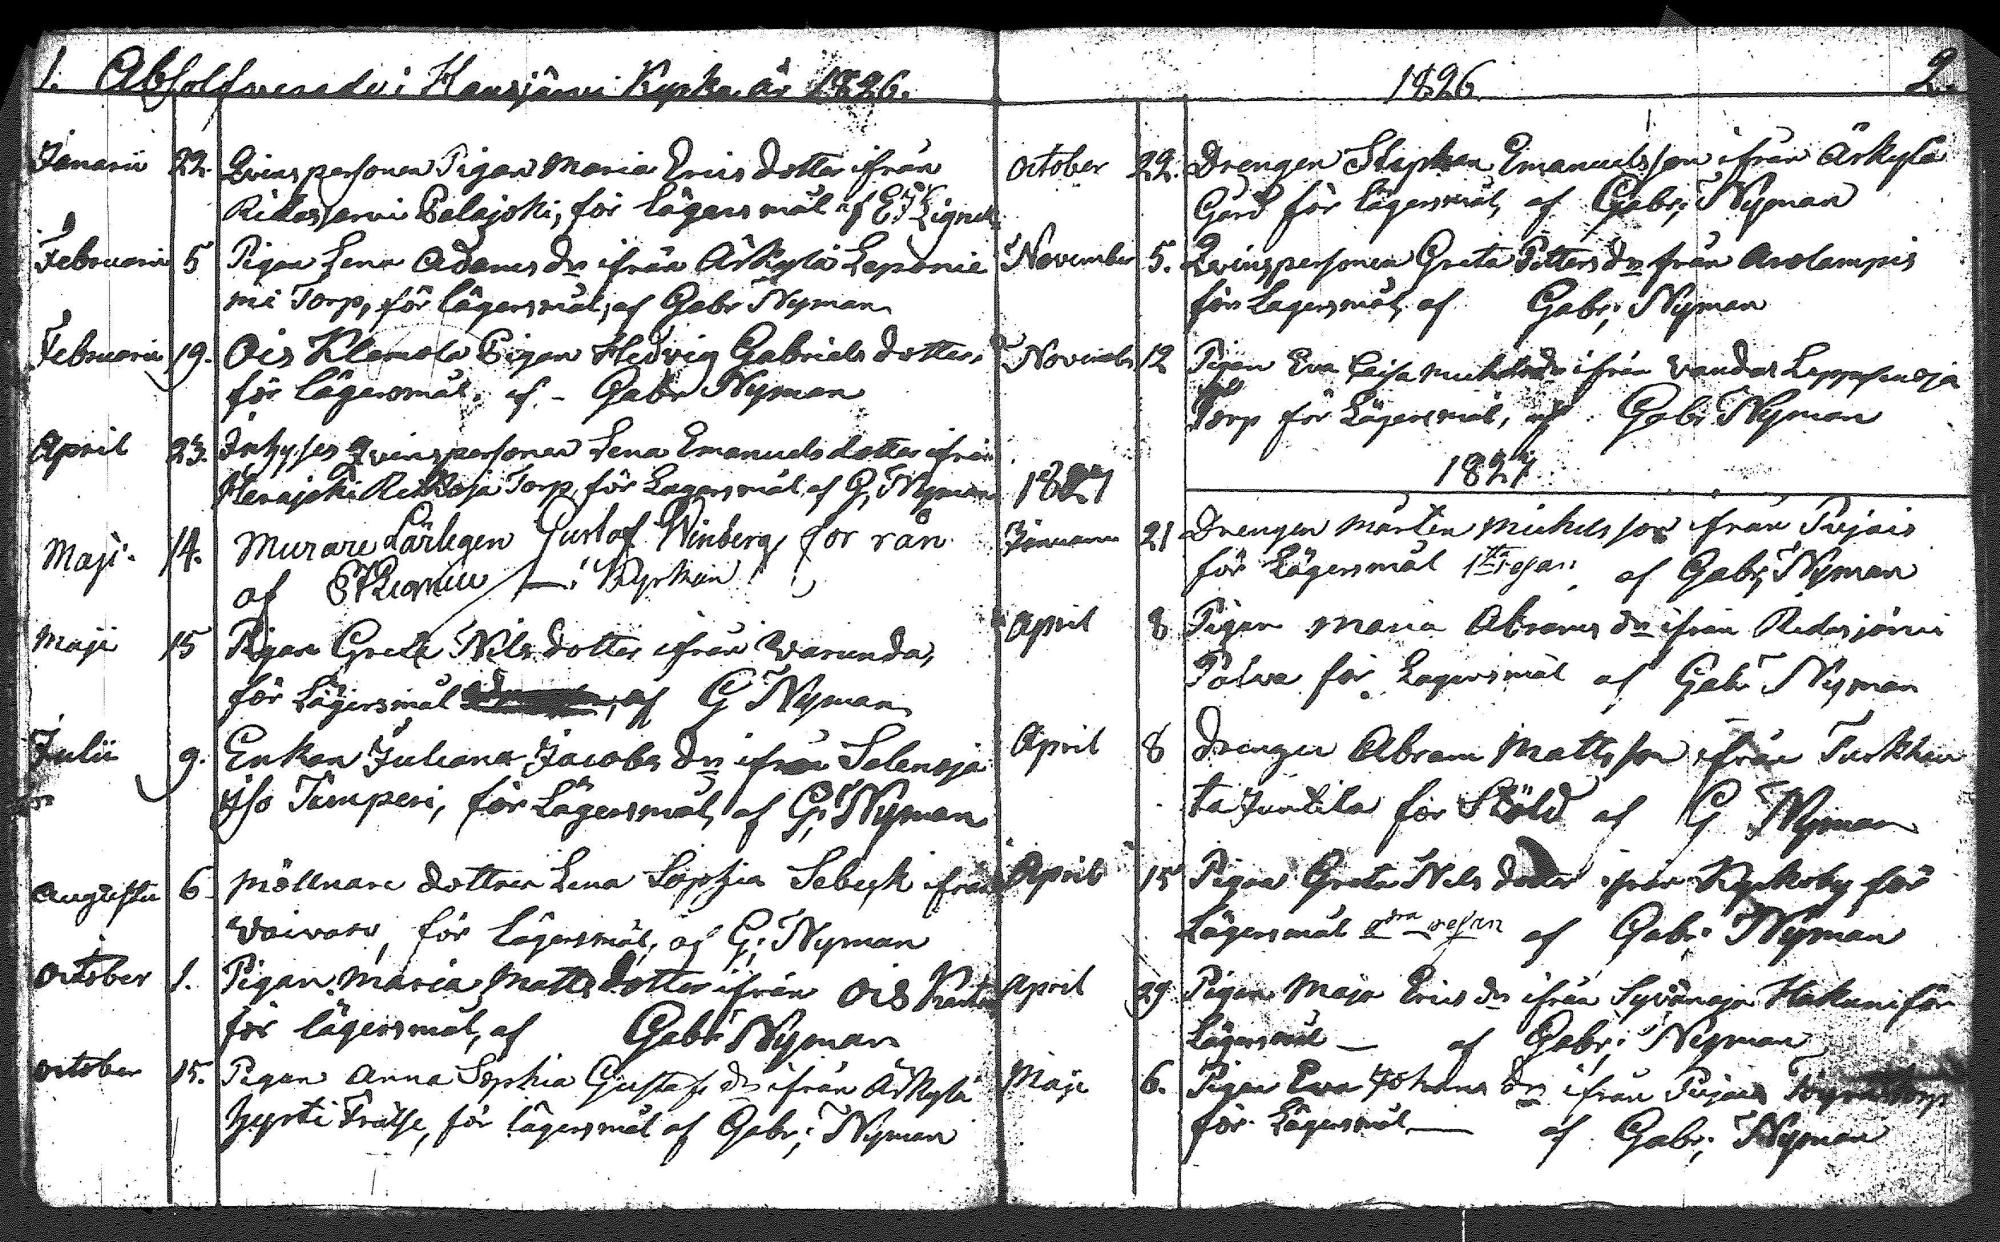 1. Absolfverade i Hausjärvi Kyrka år 1826.
Januarii 22. Qvinspersonen Pigan Maria Ericsdotter ifrån
Ridasjärvi Palajoki, för Lägersmål af
Februarii 5 Pigan Lena Adams dr ifrån Ärkylä Leponie
mi Torp, för lägersmål, af Gabr Nyman
Februarii 19. Ois Klemola Pigan Hedvig Gabriels dotter,
för lägersmål, af - Gabr Nyman
April 23. Qvinspersonen Lena Emanuels dotter ifrån
Torp, för Lägersmål, af G, Nyman
Maji 14. Murare Lärlegen Gustaf Winberg för rån
af i Kyrkan
Maji 15 Pigan Greta Nils dotter ifrån Varunda,
för Lägersmål af G Nyman
Julii 9. Enkan Juliana Jacobs dr ifrån Selenoja
Iso Temperi, för Lägersmål, af G; Nyman
Augusti 6 Möllnare dottren Lena Sophia ifrån
för Lägersmål, af G; Nyman
October 1. Pigan Maria Matts dotter ifrån Ois
för lägersmål, af Gabr Nyman
October 15. Pigan Anna Sophia Gustafs dr ifrån Ärkylä
Frälse, för lägersmål af Gabr; Nyman
1826 2.
October 29. Drengen Stephan Emanuelsson ifrån Ärkylä
Gård för Lägersmål, af Gabr; Nyman
November 5. Qvinspersonen Greta Petters dr från Arolampis
för Lägersmål, af Gabr; Nyman
November 12 Pigan Eva Caisa Michelsdr ifrån Vandas
Torp för Lägersmål, af Gabr Nyman
1827 1827
Januarii 21 Drengen Mårten Michelsson ifrån Pujais
för Lägersmål 1sta resan af Gabr; Nyman
April 8 Pigan Maria Abrams dr ifrån Ridasjärvi
Palva för Lägersmål af Gabr Nyman
April 8 Drengen Abram Mattsson ifrån Turkhau
ta Junttila för Stöld af G Nyman
April 15 Pigan Greta Nils dotter ifrån Kyrkoby för
Lägersmål 2dra resan af Gabr: Nyman
April 29 Pigan Maja Erics dr ifrån Syvänoja Hakuni för
Lägersmål — af Gabr; Nyman
Maji 6. Pigan Eva Johans dr ifrån Pujais
för Lägersmål — af Gabr; Nyman